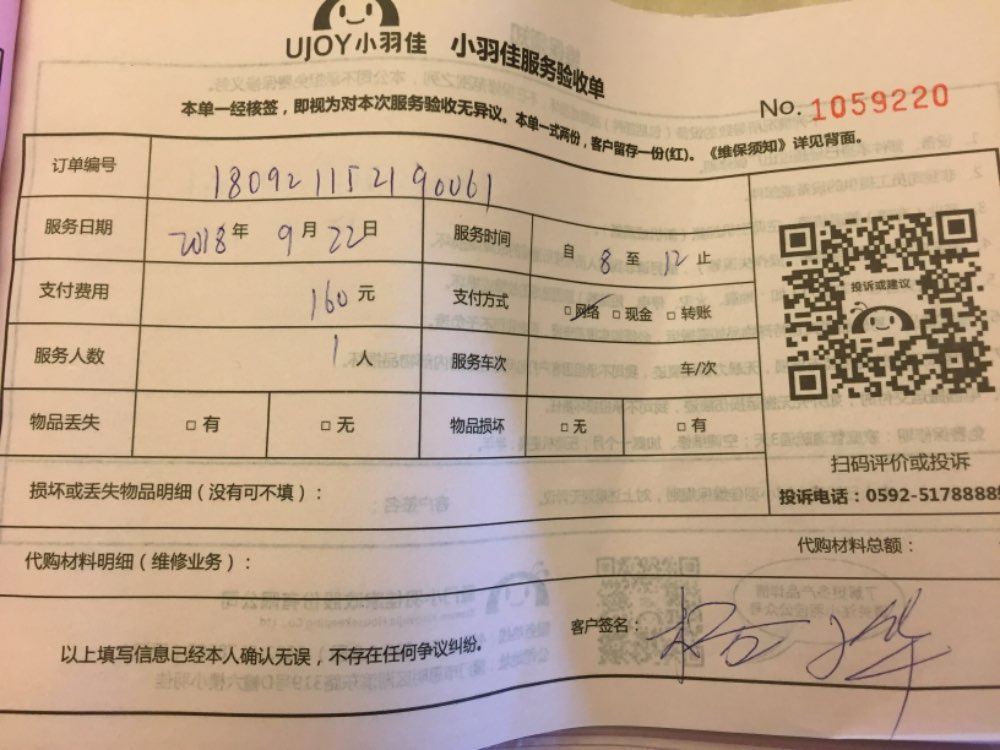 UJOY小羽佳 小羽佳服务验收单
本单一经核签，即视为对本次服务验收无异议。本单一式两份，客户留存一份(红)。《维保须知》详见背面。
No. 1059220
订单编号 180921152190061
服务日期 2018年 9月 22日 服务时间 自 8 至 12 止
支付费用 160 元 支付方式 □网络 □现金 □转账
投诉或建议
服务人数 1 人 服务车次 车/次
物品丢失 □有 □无 物品损坏 □无 □有
扫码评价或投诉
损坏或丢失物品明细（没有可不填）：
投诉电话：0592-5178888
代购材料明细（维修业务）： 代购材料总额：
以上填写信息已经本人确认无误，不存在任何争议纠纷。 客户签名：